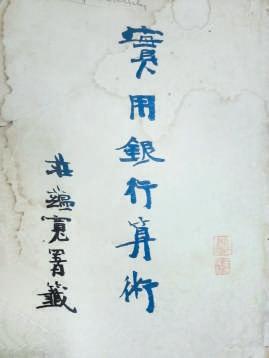 實用銀行算術
莊蘊寬署籤